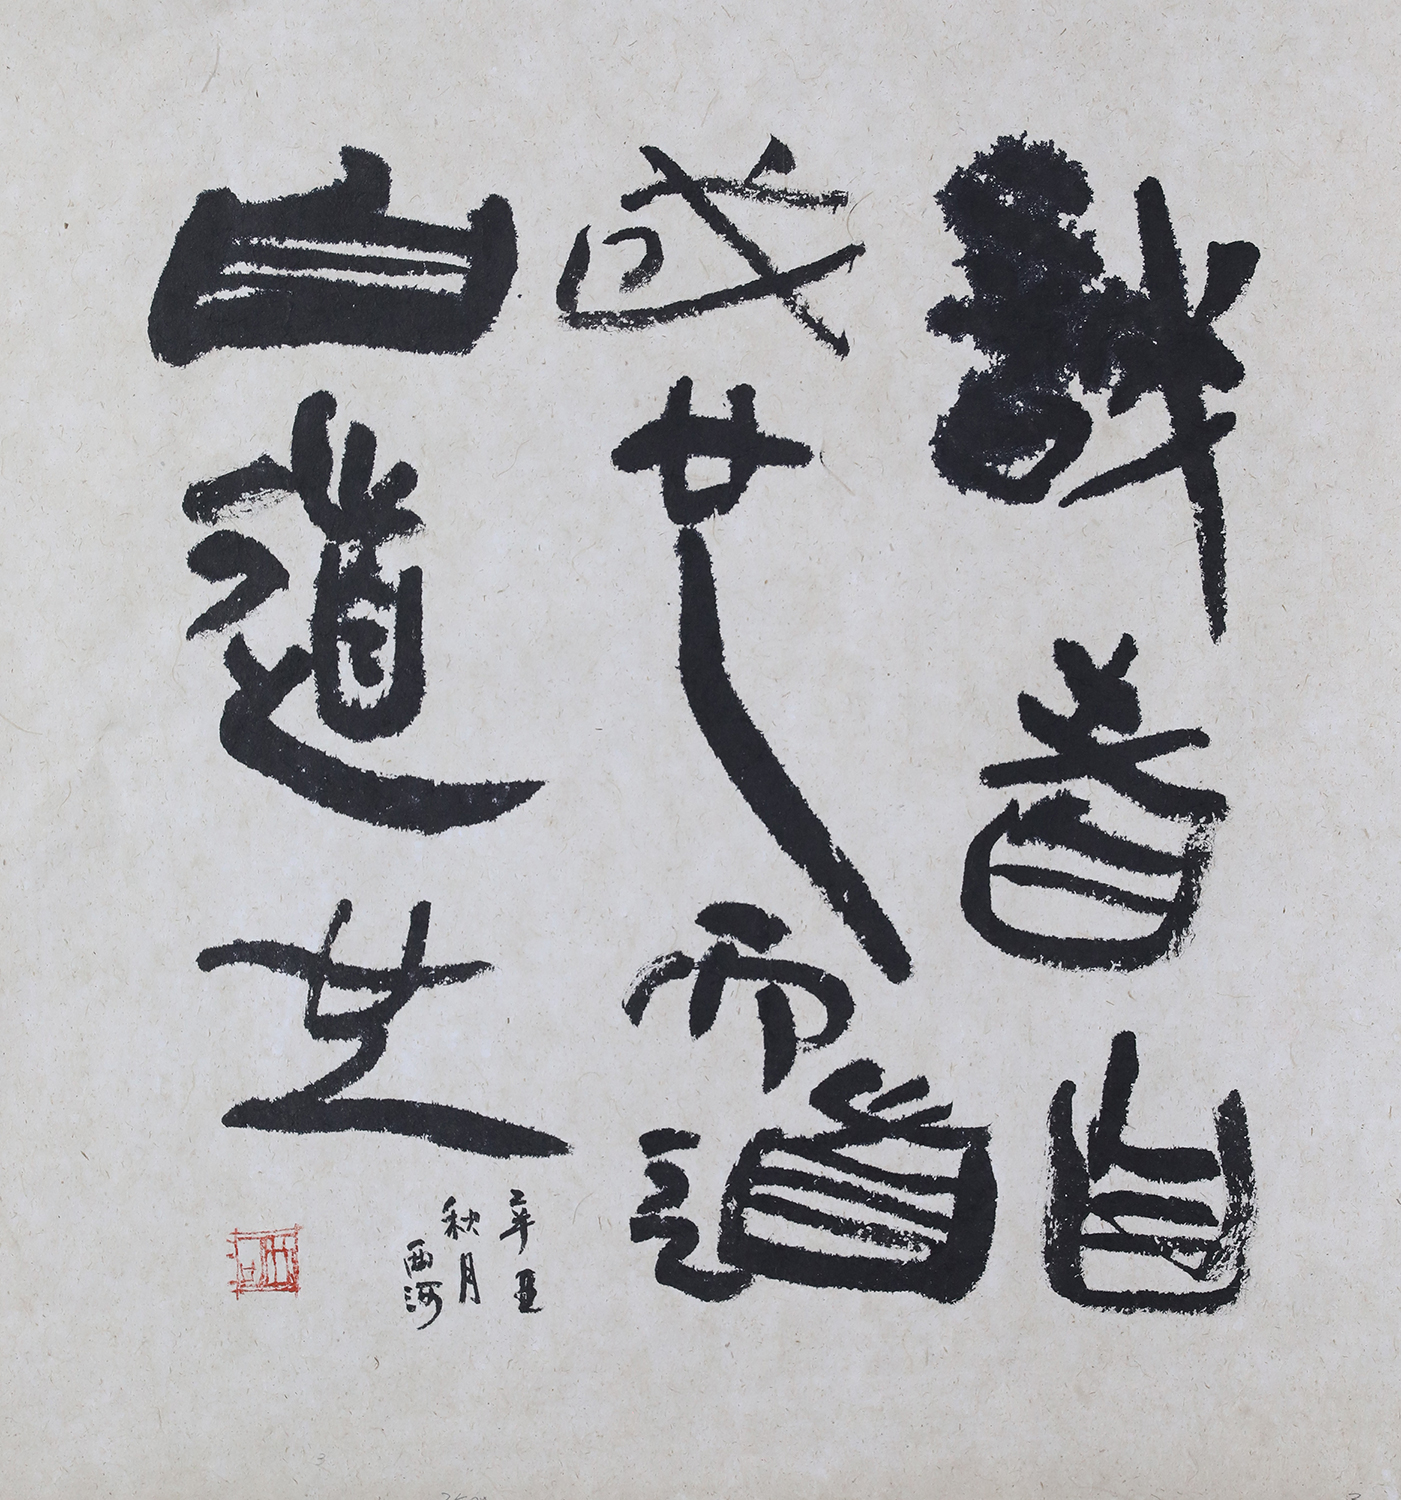 誠者自
成也而道
自道也
辛丑
秋月
西河